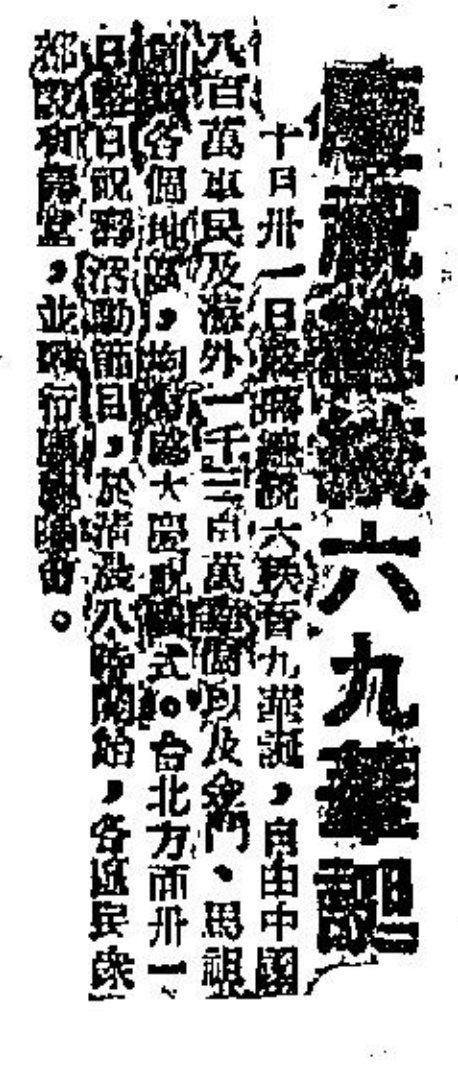 慶祝總統六九華誕
十月卅一日為蔣總統六秩晉九華誕，自由中國
八百萬軍民及海外一千三百萬華僑以及金門、馬祖
各個地區，均盛大慶祝儀式。台北方面卅一
日整日祝壽活動節目，於清晨八時開始，各區民衆
都設有壽堂，並舉行慶祝晚會。